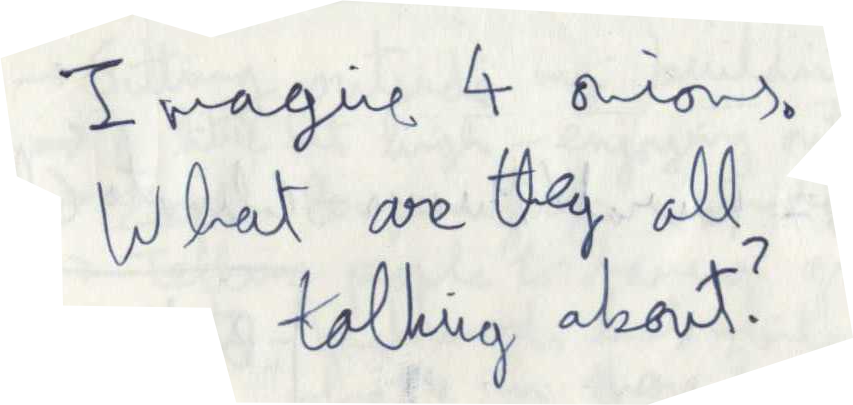 Imagine 4 onions.
What are they all
talking about?